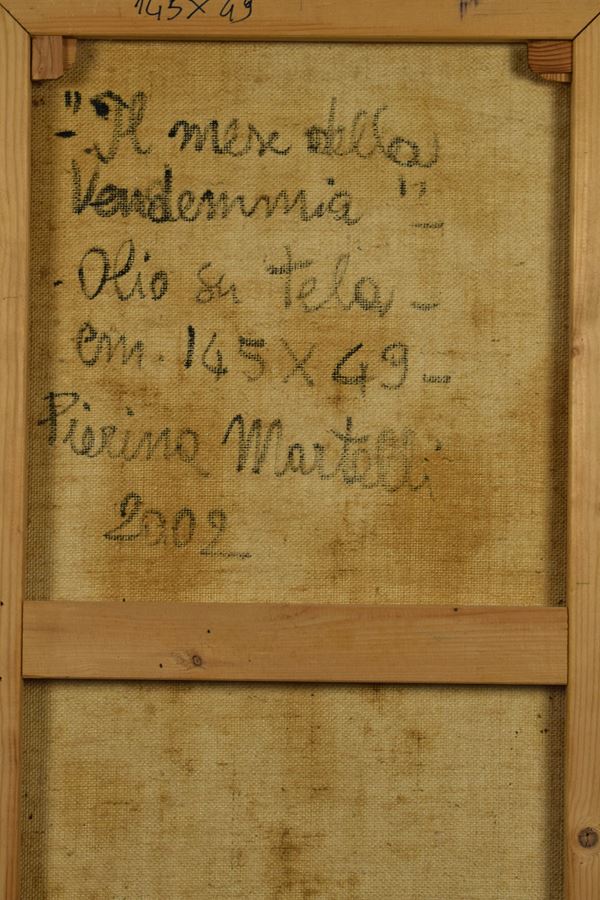 145X49
"Il mese della
Vendemmia"_
- Olio su tela -
cm. 145X49-
Pierina Martelli
2002_